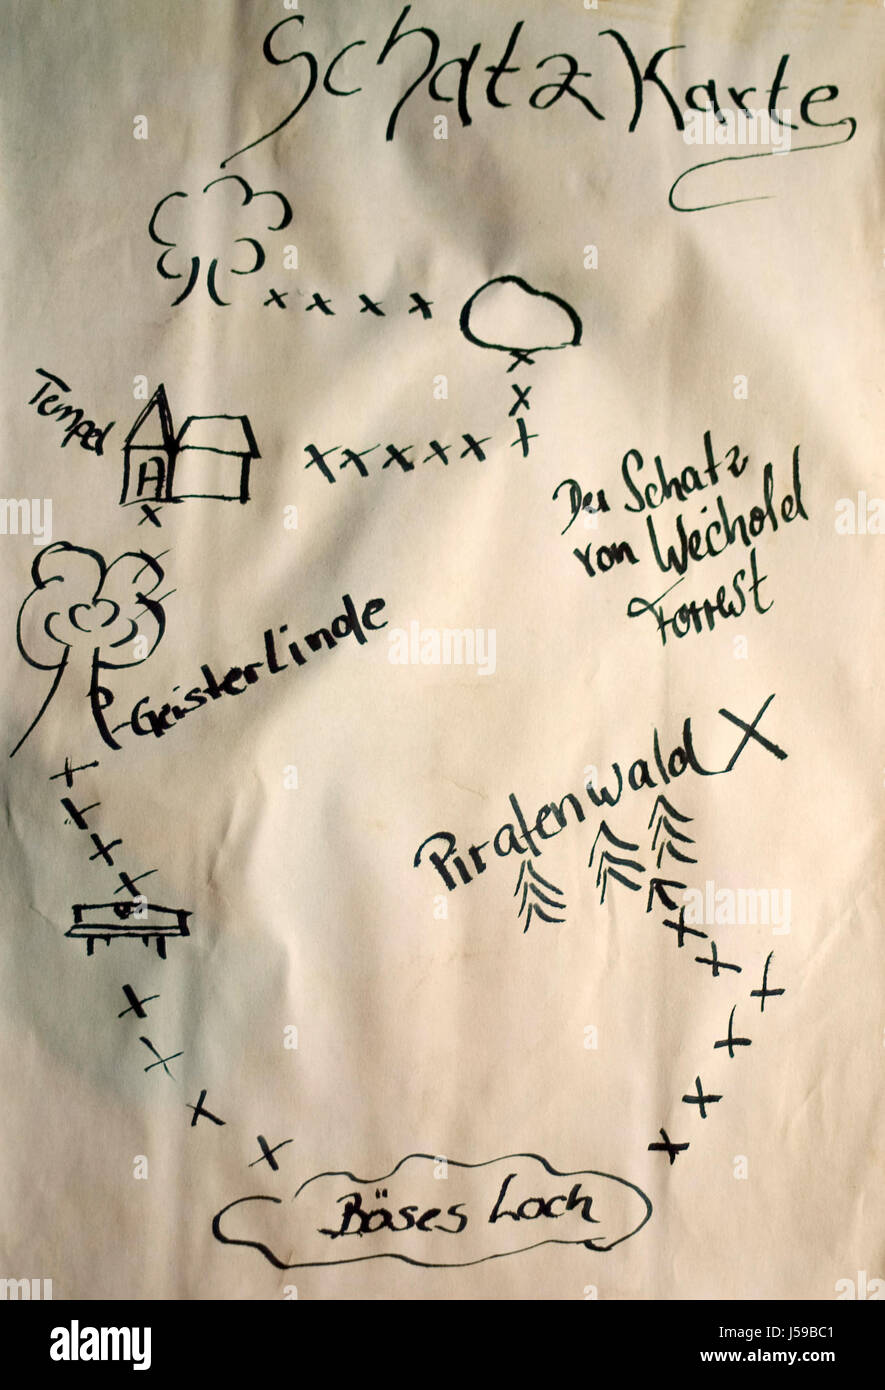 SchatzKarte
Tempel
Der Schatz
von Wechold
Forrest
GeisterLinde
Piratenwald
Böses Loch
alamy
alamy
Image ID: J59BC1
www.alamy.com